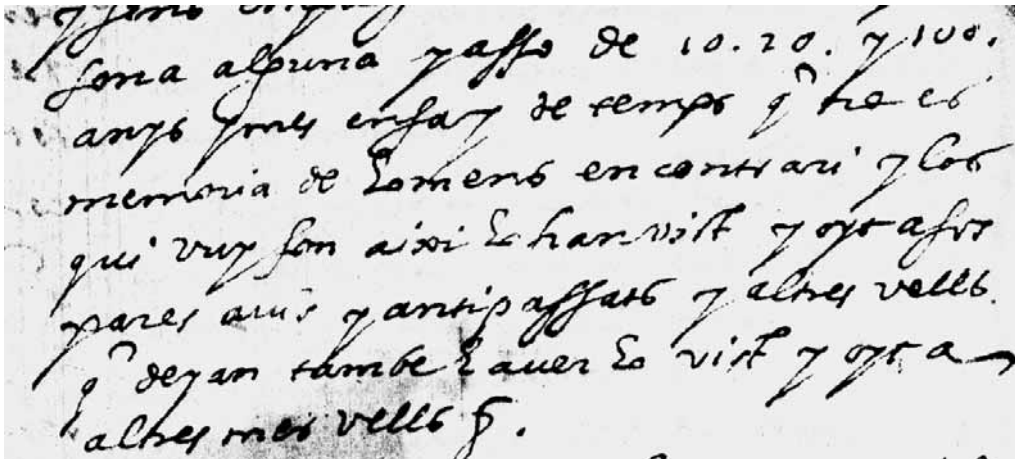 y sens
sona alguna y asso de 10. 20. y 100.
anys y mes ensa y de temps q no es
memoria de homens en contrari y los
qui vuy son aixi ho han vist y oyt a ses
pares avis y antipassats y altres vells
q deyan tambe haver ho vist y oyt a
altres mes vells